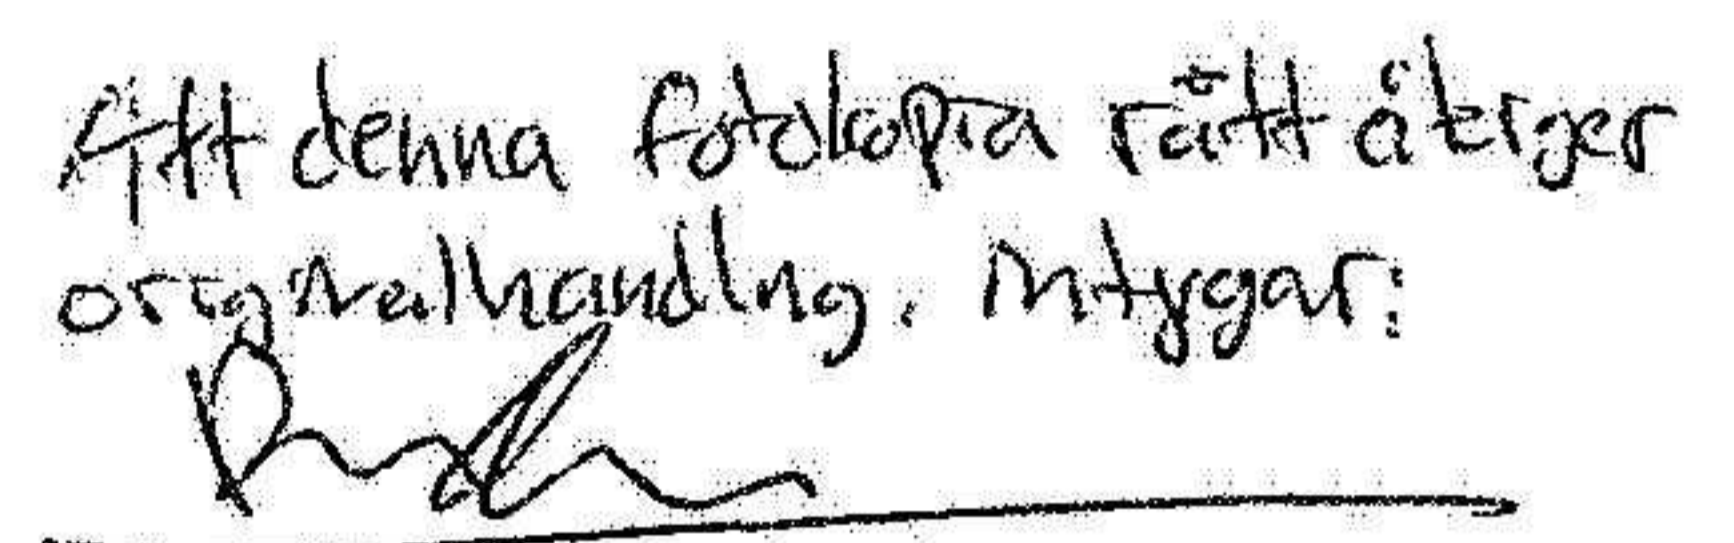 Att denna fotokopia rätt återger
originalhandling. intygar: